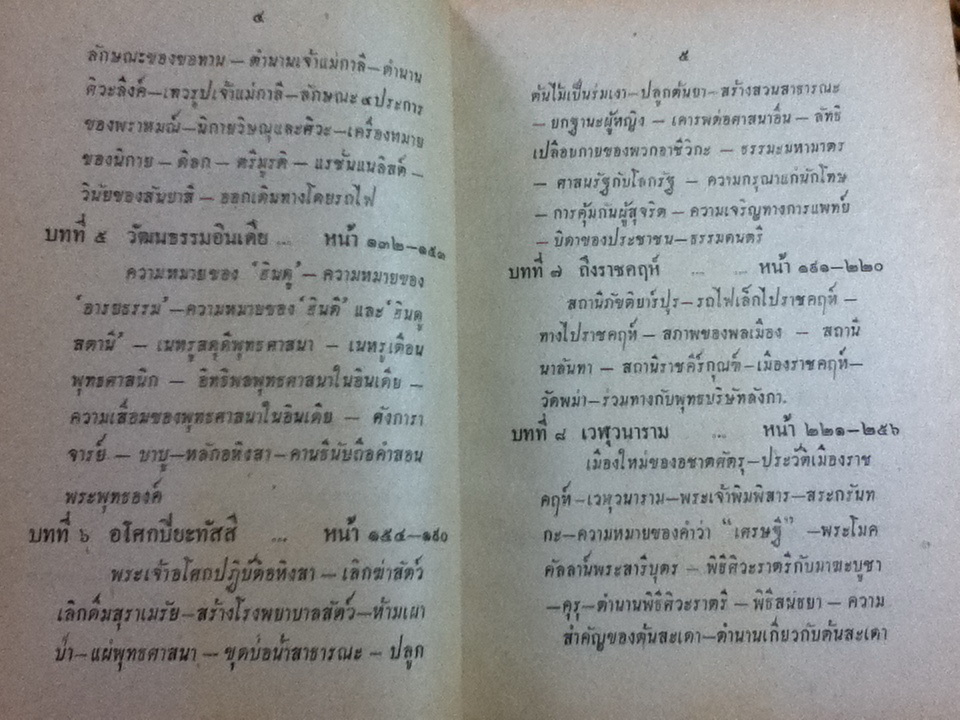 ๔
ลักษณะของขอทาน — ตำนานเจ้าแม่กาลี — ตำนาน
ศิวะลึงค์ — เทวรูปเจ้าแม่กาลี — ลักษณะ ๔ ประการ
ของพราหมณ์ — นิกายวิษณุและศิวะ — เครื่องหมาย
ของนิกาย — ดิลก — ตรีมูรติ — แรชันแนลิสต์ —
วินัยของสันยาสี — ออกเดินทางโดยรถไฟ
บทที่ ๕ วัฒนธรรมอินเดีย ... หน้า ๑๓๒—๑๕๓
ความหมายของ 'ฮินดู' — ความหมายของ
'อารยธรรม' — ความหมายของ 'ฮินดี' และ 'ฮินดู
สตานี' — เนหรูสดุดีพุทธศาสนา — เนหรูเตือน
พุทธศาสนิก — อิทธิพลพุทธศาสนาในอินเดีย —
ความเสื่อมของพุทธศาสนาในอินเดีย — ศังการา
จารย์ — บาบู — หลักอหิงสา — คานธีนับถือคำสอน
พระพุทธองค์
บทที่ ๖ อโศกปิยะทัสสี ... หน้า ๑๕๔—๑๙๐
พระเจ้าอโศกปฏิบัติอหิงสา — เลิกฆ่าสัตว์
เลิกดื่มสุราเมรัย — สร้างโรงพยาบาลสัตว์ — ห้ามเผา
ป่า — แผ่พุทธศาสนา — ขุดบ่อน้ำสาธารณะ — ปลูก
๕
ต้นไม้เป็นร่มเงา — ปลูกต้นยา — สร้างสวนสาธารณะ
— ยกฐานะผู้หญิง — เคารพต่อศาสนาอื่น — ลัทธิ
เปลือยกายของพวกอาชีวิกะ — ธรรมะมหามาตร
— ศาสนรัฐกับโลกรัฐ — ความกรุณาแก่นักโทษ
— การคุ้มกันผู้สุจริต — ความเจริญทางการแพทย์
— บิดาของประชาชน — ธรรมดนตรี
บทที่ ๗ ถึงราชคฤห์ ... ... หน้า ๑๙๑—๒๒๐
สถานีภัขติยาร์ปุร — รถไฟเล็กไปราชคฤห์ —
ทางไปราชคฤห์ — สภาพของพลเมือง — สถานี
นาลันทา — สถานีราชคีร์กุณฑ์ — เมืองราชคฤห์ —
วัดพม่า — ร่วมทางกับพุทธบริษัทลังกา.
บทที่ ๘ เวฬุวนาราม ... หน้า ๒๒๑—๒๕๖
เมืองใหม่ของอชาตศัตรู — ประวัติเมืองราช
คฤห์ — เวฬุวนาราม — พระเจ้าพิมพิสาร — สระกรันท
กะ — ความหมายของคำว่า "เศรษฐี" — พระโมค
คัลลาน์พระสารีบุตร — พิธีศิวะราตรีกับมาฆะบูชา
— คุรุ — ตำนานพิธีศิวะราตรี — พิธีสนธยา — ความ
สำคัญของต้นสะเดา — ตำนานเกี่ยวกับต้นสะเดา